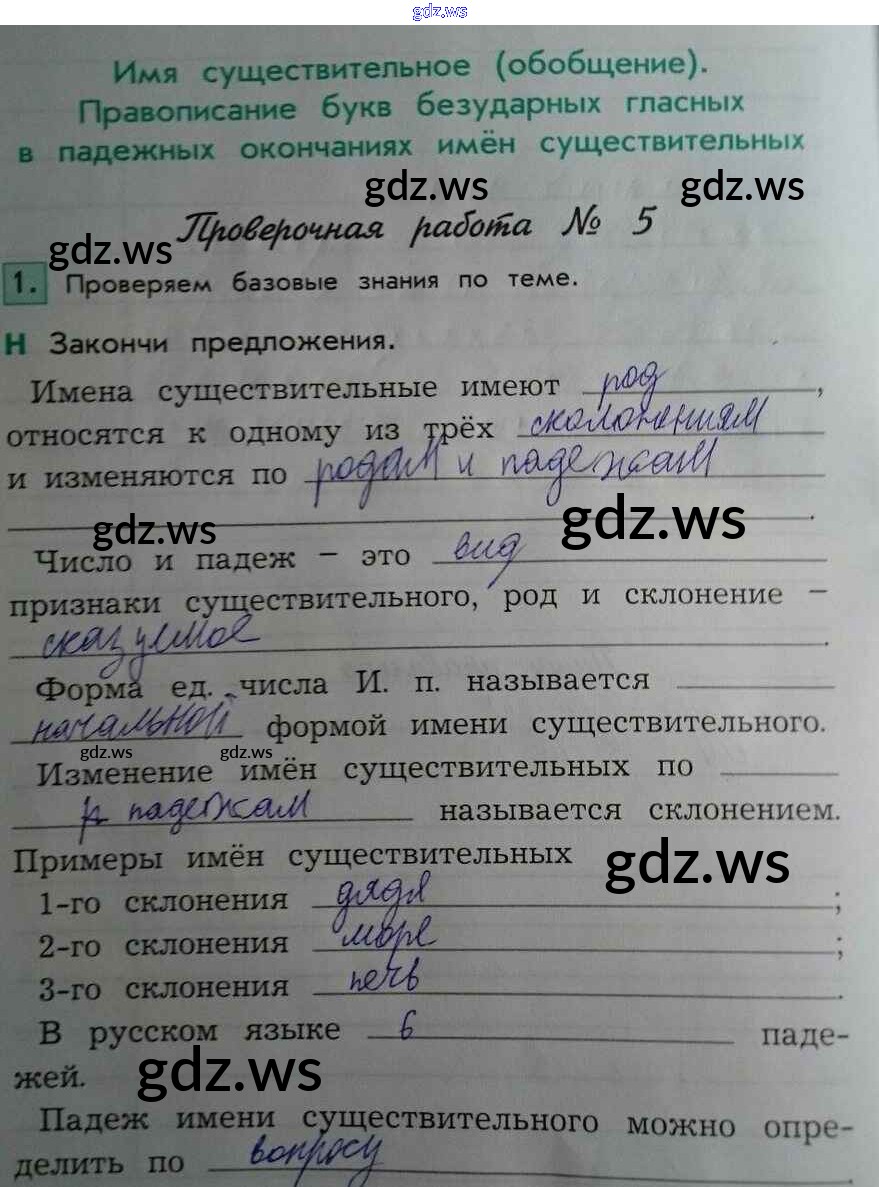 gdz.ws
Имя существительное (обобщение).
Правописание букв безударных гласных
в падежных окончаниях имён существительных
gdz.ws gdz.ws
Проверочная работа № 5
gdz.ws
1. Проверяем базовые знания по теме.
Н Закончи предложения.
Имена существительные имеют род,
относятся к одному из трёх сколонениям
и изменяются по родам и падежам
gdz.ws gdz.ws .
Число и падеж – это вид
признаки существительного, род и склонение –
сказуемое .
Форма ед. числа И. п. называется
начальной формой имени существительного.
gdz.ws gdz.ws
Изменение имён существительных по
падежам называется склонением.
Примеры имён существительных
gdz.ws
1-го склонения дядя ;
2-го склонения море ;
3-го склонения печь .
В русском языке 6 паде-
жей.
gdz.ws
Падеж имени существительного можно опре-
делить по вопросу .